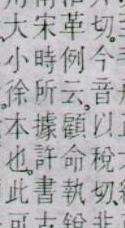 切。今音以稅切
革例云。顧命執
宋時所據許書
大小徐本也。此